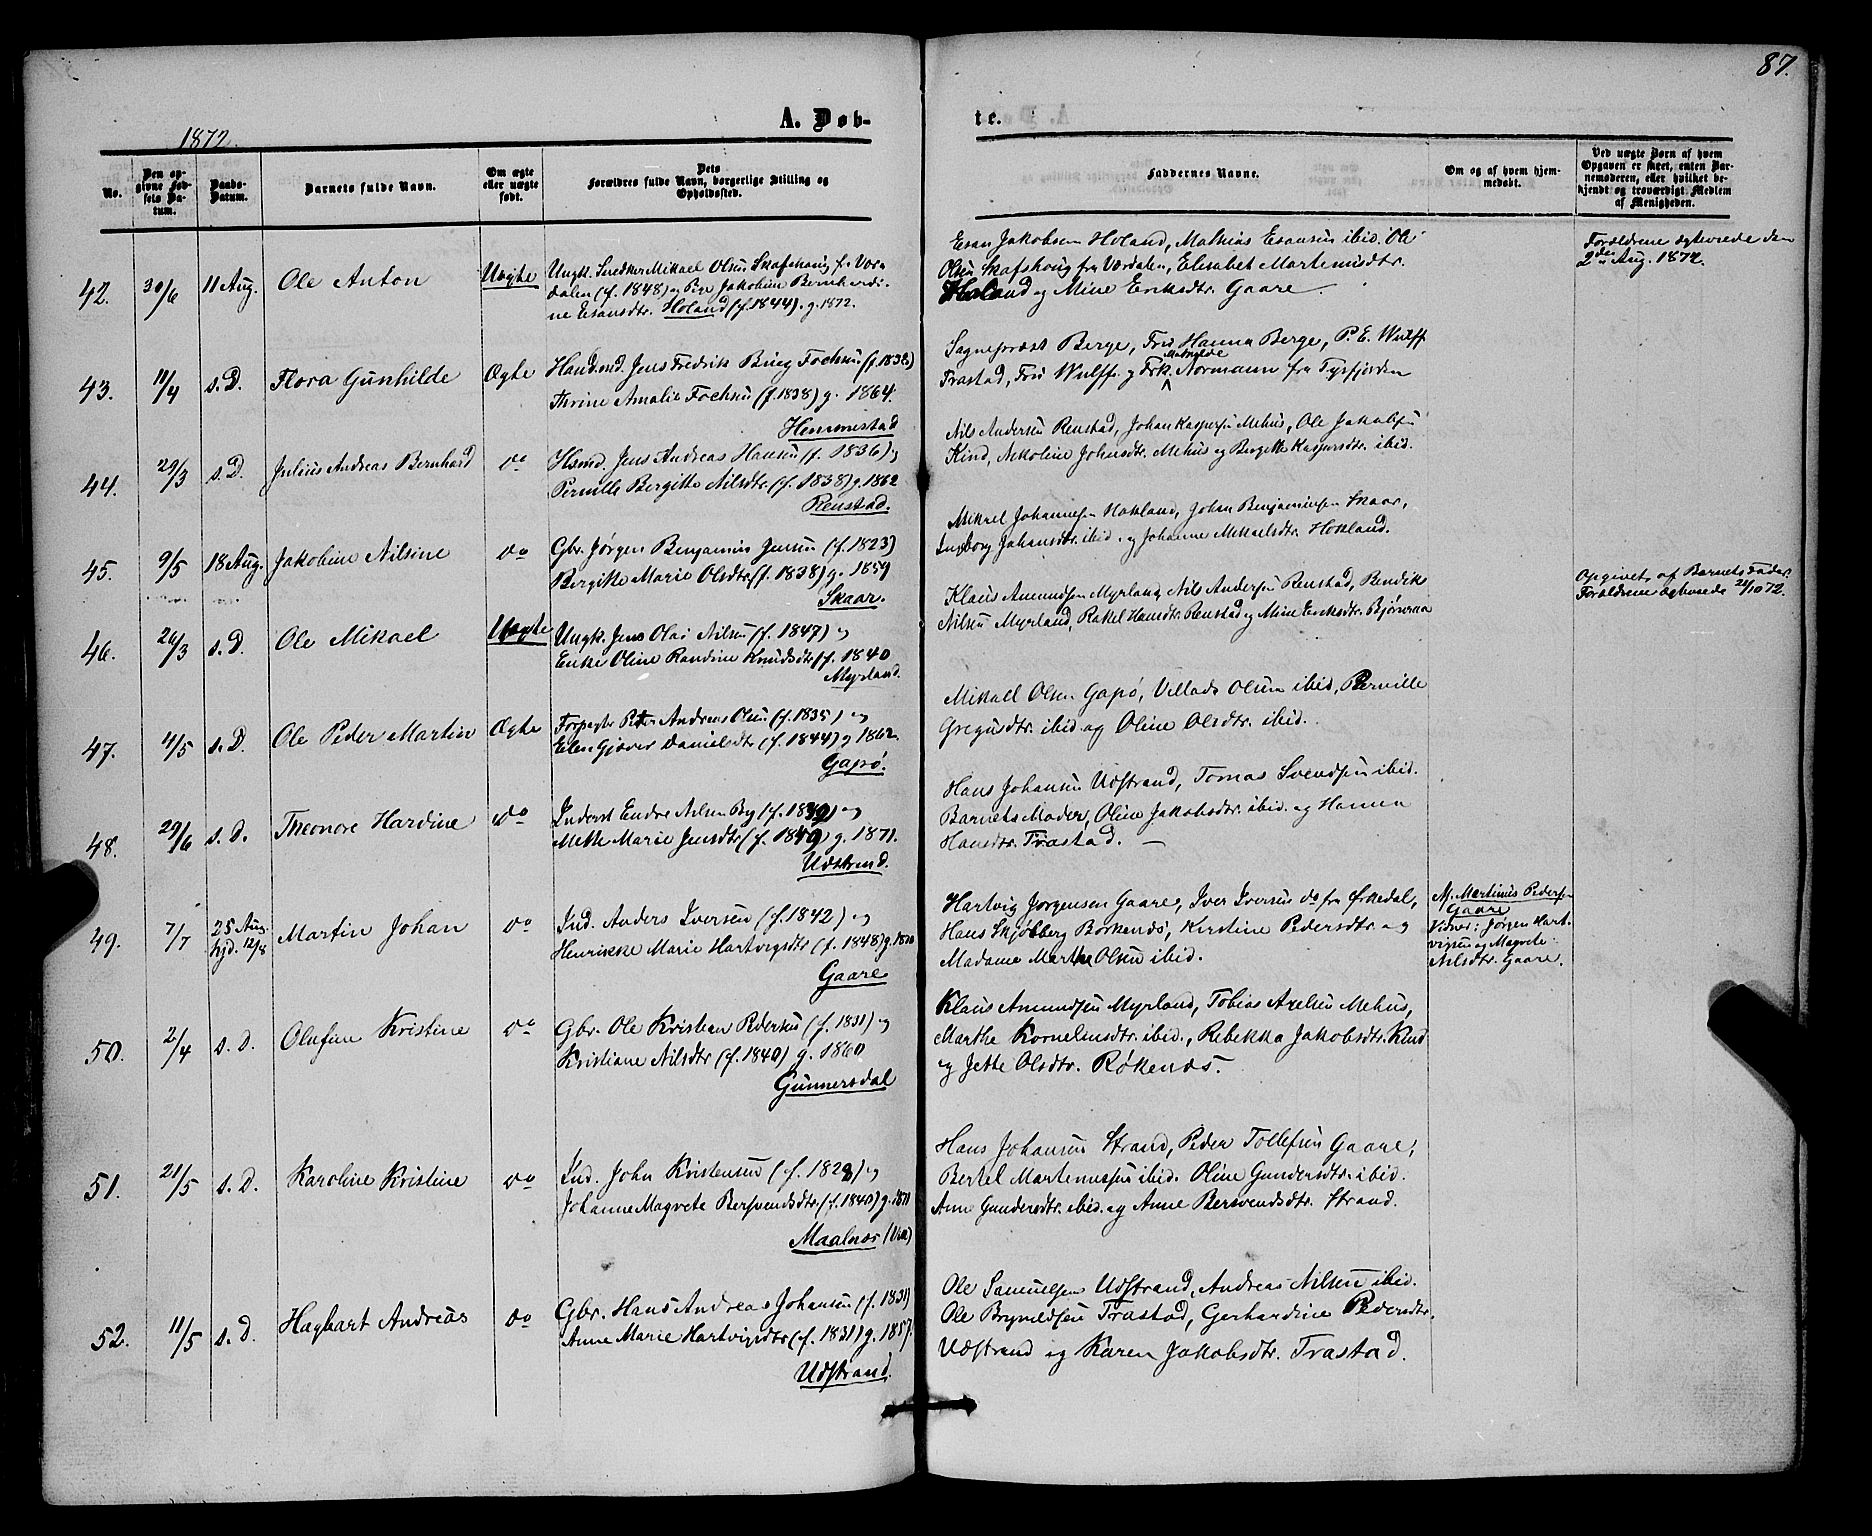 87.
A. Døb-
te.
1872.
No.
Den op-
givne Fød-
sels Da-
tum.
Daabs-
Datum.
Barnets fulde Navn.
Om ægte
eller uægte
født.
Dets
Forældres fulde Navn, borgerlige Stilling og
Opholdssted.
Faddernes Navne.
Om og af hvem hjem-
medøbt.
Ved uægte Børn af hvem
Opgaven er skeet, enten Bar-
nemoderen, eller hvilket be-
kjendt og troværdigt Medlem
af Menigheden.
42. 30/6 11 Aug. Ole Anton Uægte
Ungk. Snedker Mikael Olsen Skafshaug fr. Vær-
dalen (f. 1848) og Pge Jakobine Bernhardi-
ne Esansdtr. Holand (f. 1844). g. 1872.
Esan Jakobsen Holand, Mathias Esansen ibid. Ole
Olsen Skafshoug fra Værdalen, Elisabet Martemisdtr.
Holand og Mine Eriksdtr. Gaare.
Forældrene ægteviede den
2den Aug. 1872.
43. 11/4 s.D. Flora Gunhilde Ægte
Handmd. Jens Fredrik Bing Fochsen (f. 1832)
Thrine Amalie Fochsen (f. 1838) g. 1864.
Hemmestad
Sognepræst Berge, Fru Hanna Berge, P. E. Wulff
Trastad, Fru Wulff og Frk. Mathilde Normann fra Tysfjorden
44. 29/3 s.D. Julius Andreas Bernhard do
Hsmd. Jens Andreas Hansen (f. 1836) og
Pernille Bergitte Nilsdtr. (f. 1838) g. 1862
Renstad.
Nils Andersen Renstad, Johan Kaspersen Mehus, Ole Jakobsen
Kind, Nikoline Johnsdtr. Mehus og Bergitte Kaspersdtr. ibid.
45. 9/5 18 Aug. Jakobine Nilsine do
Gbr. Jørgen Benjamin Jensen (f. 1823)
Bergitte Marie Olsdtr. (f. 1838) g. 1859
Skaar.
Mikael Johannesen Hokland, Johan Benjaminsen Skaar,
Ingeborg Johansdtr. ibid. og Johanne Mikaelsdtr. Hokland.
46. 26/3 s.D. Ole Mikael Uægte
Ungk. Jens Olai Nilsen (f. 1847) og
Enke Oline Randine Knudsdtr. (f. 1840
Myrland.
Klaus Amundsen Myrland, Nils Andersen Renstad, Bendik
Nilsen Myrland, Rakel Hansdtr. Renstad og Mine Eriksdtr. Bjørnraa
Opgivet af Barnets Fader
Forældrene ægteviede 21/10 72.
47. 4/5 s.D. Ole Peder Martin Ægte
Peter Andreas Olsen (f. 1835) og
Elen Gjøver Danielsdtr (f. 1844) g 1862.
Gapø.
Mikael Olsen Gapø, Villads Olsen ibid, Pernille
Gregusdtr. ibid. og Oline Olsdtr. ibid.
48. 29/6 s.D. Theonore Hardine do
Inderst Endre Nilsen Bøg (f. 1839) og
Mette Marie Jensdtr (f. 1849) g. 1871.
Udstrand.
Hans Johansen Udstrand, Tomas Svendsen ibid.
Barnets Moder, Oline Jakobsdtr. ibid. og Hanna
Hansdtr. Trastad. —
49. 7/7 25 Aug.
hjd. 12/8 Martin Johan do
Ind. Anders Iversen (f. 1842) og
Henrikke Marie Hartvigsdtr (f. 1848) g. 1870
Gaare
Hartvig Jørgensen Gaare, Iver Iversen do fra Ørkedal,
Hans Skjølberg Borkenæs, Kirstine Pedersdtr. og
Madame Marthe Olsen ibid.
Af. Martinus Pedersen
Gaare
Vidner: Jørgen Hart-
vigsen og Magrete
Nilsdtr. Gaare.
50. 2/4 s.D. Olufine Kristine do
Gbr. Ole Kristian Pedersen (f. 1831) og
Kristiane Nilsdtr (f. 1840) g. 1860
Gunnersdal
Klaus Amundsen Myrland, Tobias Axelsen Mehus,
Marthe Kornelisdtr. ibid., Rebekka Jakobsdtr. Kind
og Jette Olsdtr. Røkenæs.
51. 21/5 s.D. Karoline Kristine do
Ind. John Kristensen (f. 1828) og
Johanne Magrete Bersvendsdtr. (f. 1840) g. 1871
Maalnes (Vik)
Hans Johansen Strand, Peder Tollefsen Gaare,
Bertel Martenussen ibid. Oline Gundersdtr. ibid.
Anne Gundersdtr. ibid. og Anne Bersvendsdtr. Strand.
52. 11/5 s.D. Hagbart Andreas do
Gbr. Hans Andreas Johansen (f. 1831)
Anne Marie Hartvigsdtr (f. 1831) g. 1857.
Udstrand.
Ole Samuelsen Udstrand, Andreas Nilsen ibid.
Ole Brynildsen Trastad, Gerhardine Pedersdtr.
Udstrand og Karen Jakobsdtr. Trastad.